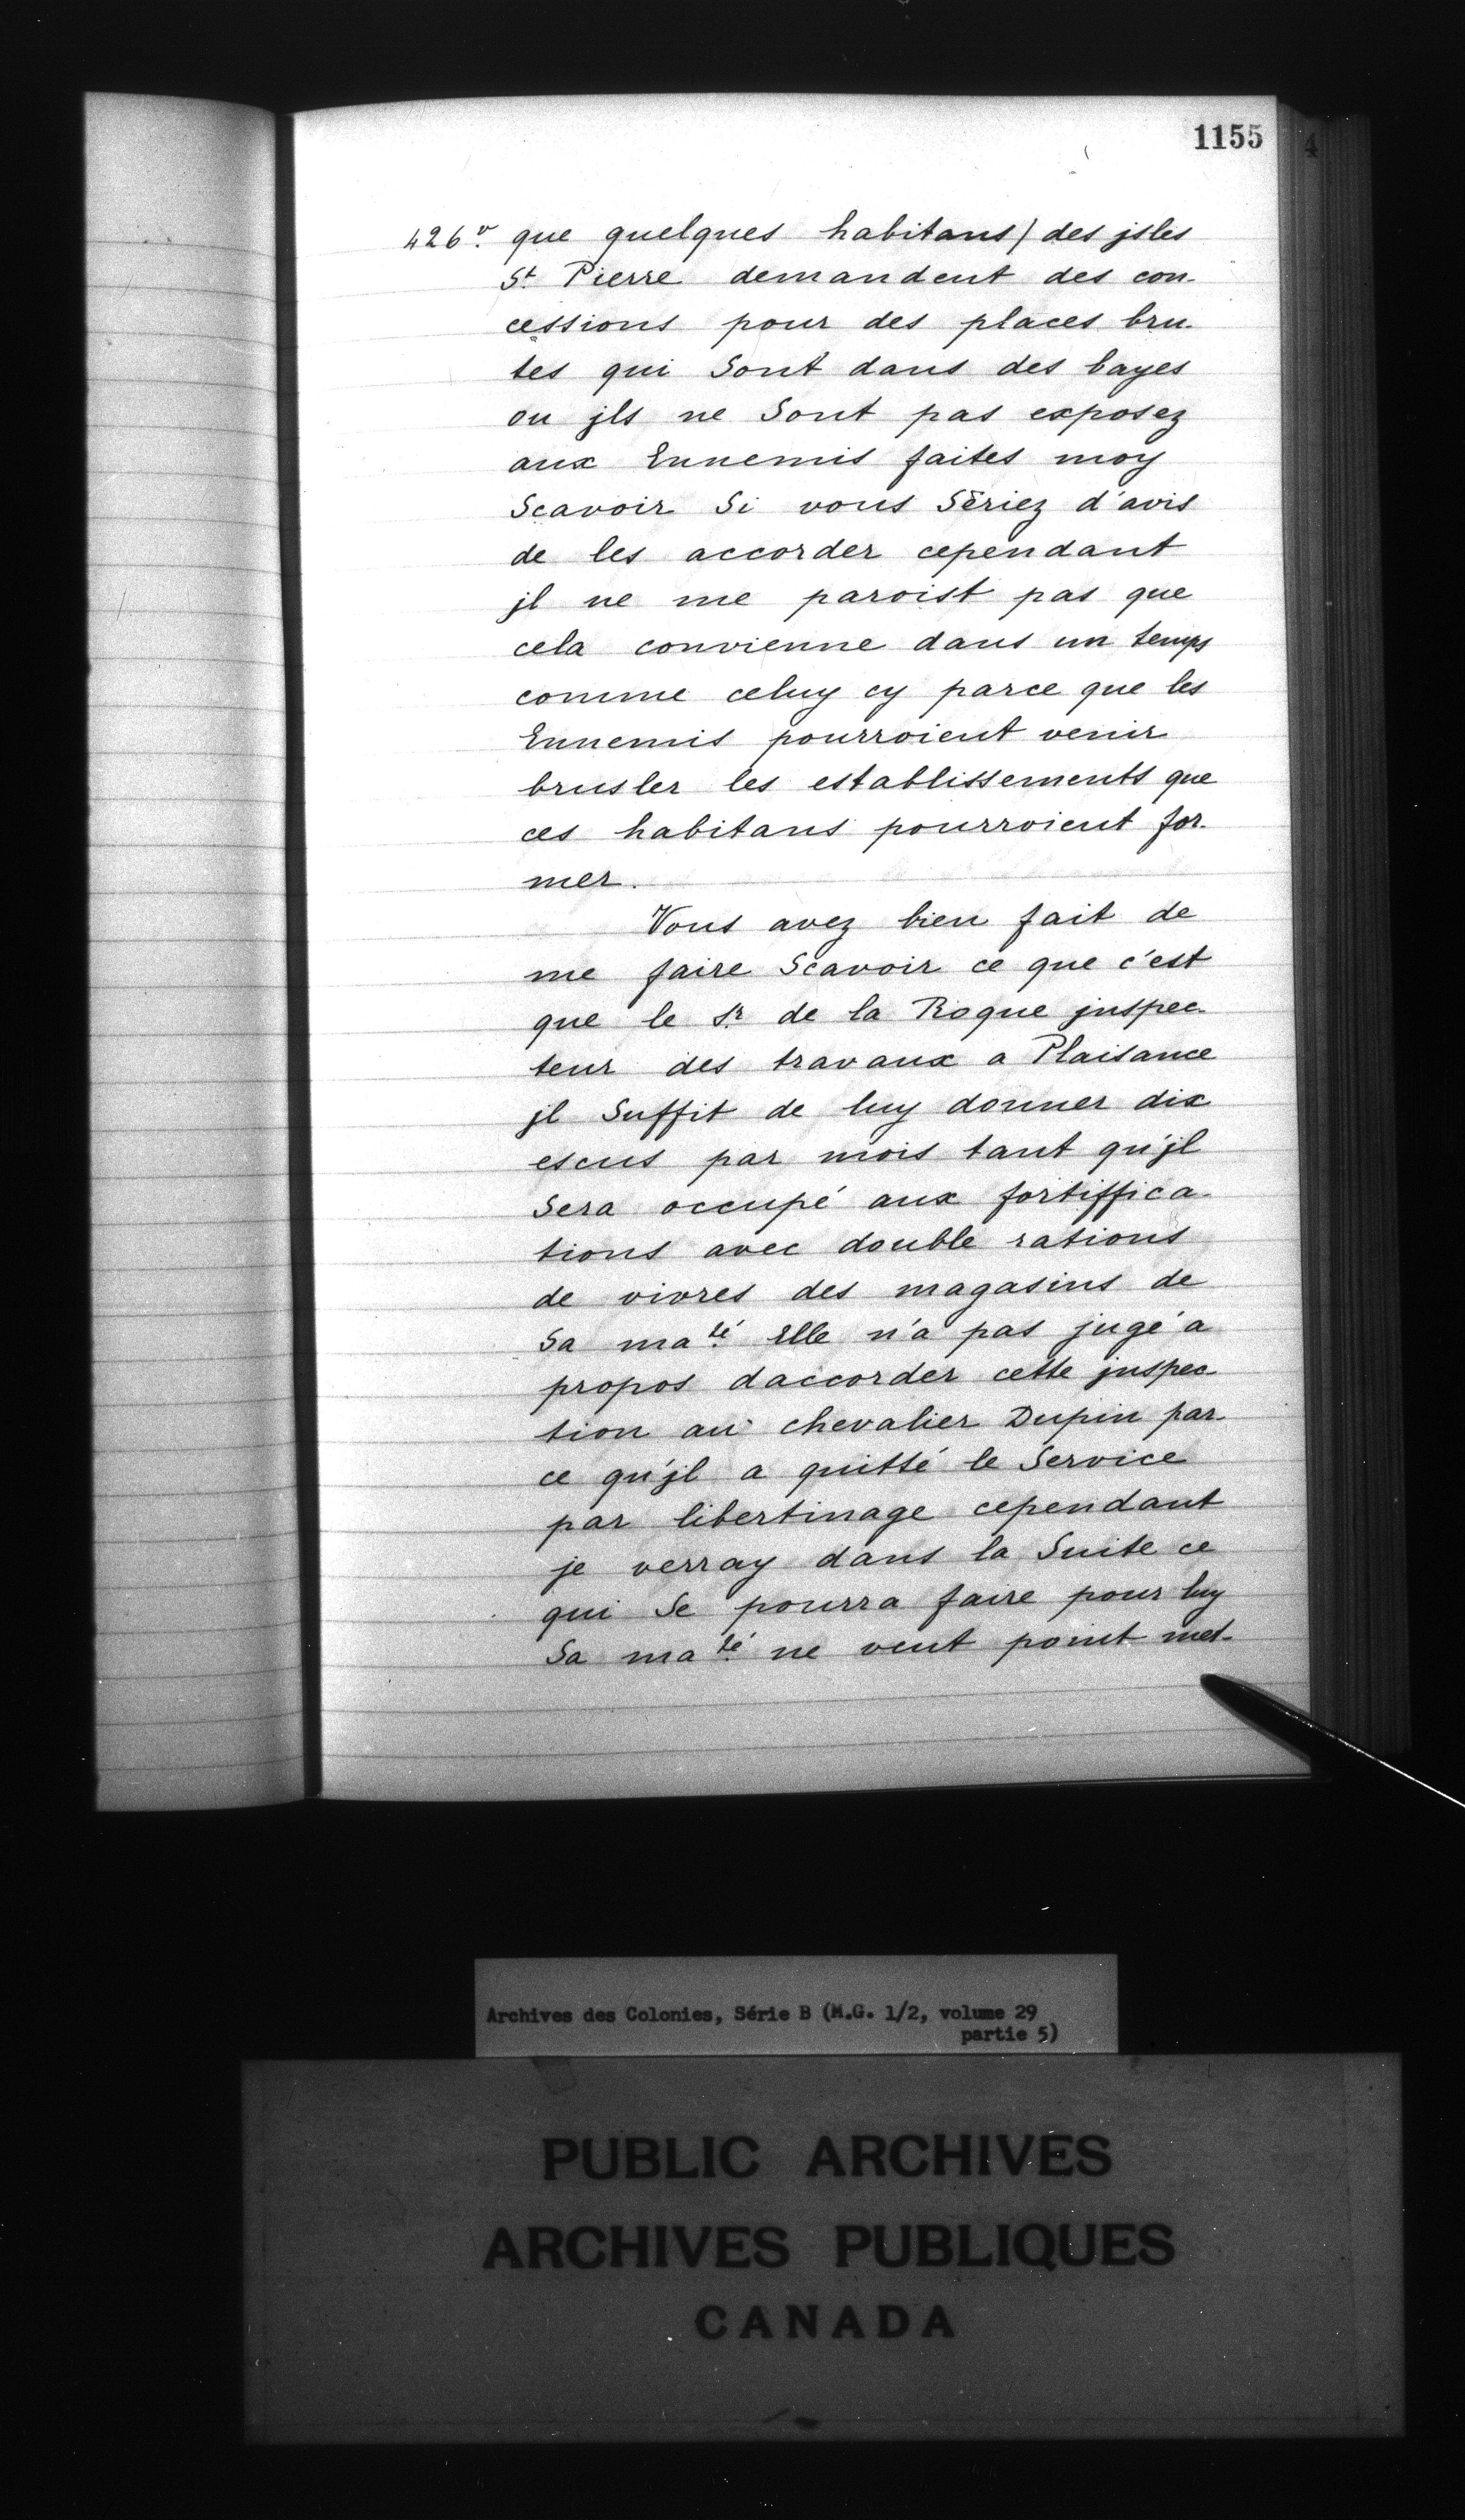 1155
4
426v. que quelques habitans) des jsles
St. Pierre demandent des con-
cessions pour des places bru-
tes qui Sont dans des bayes
ou jls ne Sont pas exposez
aux Ennemis faites moy
Scavoir Si vous Seriez d'avis
de les accorder cependant
jl ne me paroist pas que
cela convienne dans un temps
comme celuy cy parce que les
Ennemis pourroient venir
brusler les establissements que
ces habitans pourroient for-
mer.
Vous avez bien fait de
me faire Scavoir ce que c'est
que le Sr. de la Roque jnspec-
teur des travaux a Plaisance
jl Suffit de luy donner dix
escus par mois tant qu'jl
Sera occupé aux fortiffica-
tions avec double rations
de vivres des magasins de
Sa maté. Elle n'a pas jugé a
propos daccorder cette jnspec-
tion au chevalier Dupin par-
ce qu'jl a quitté le Service
par libertinage cependant
je verray dans la Suite ce
qui Se pourra faire pour luy
Sa maté. ne veut point met-
Archives des Colonies, Série B (M.G. 1/2, volume 29
partie 5)
PUBLIC ARCHIVES
ARCHIVES PUBLIQUES
CANADA